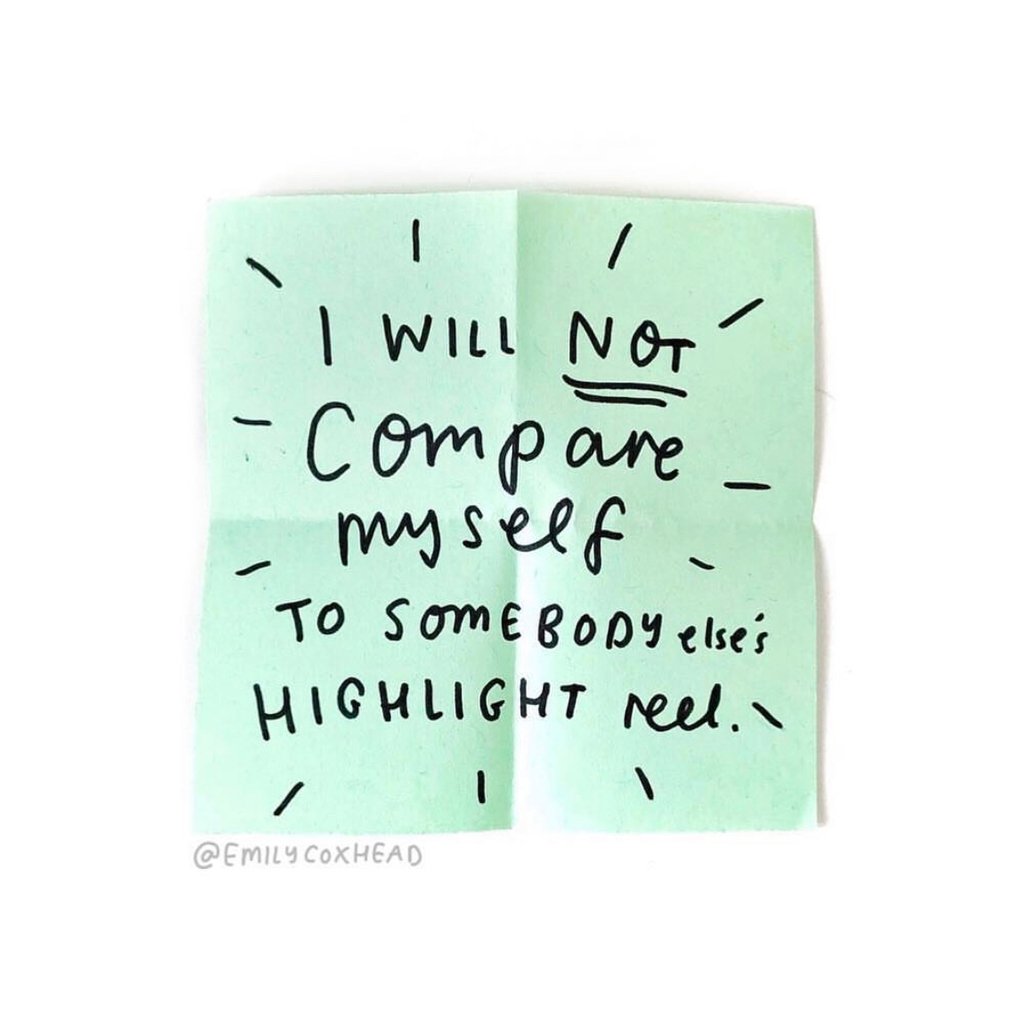 I WILL NOT
Compare
myself
TO SOMEBODY else's
HIGHLIGHT reel.
@EMILYCOXHEAD